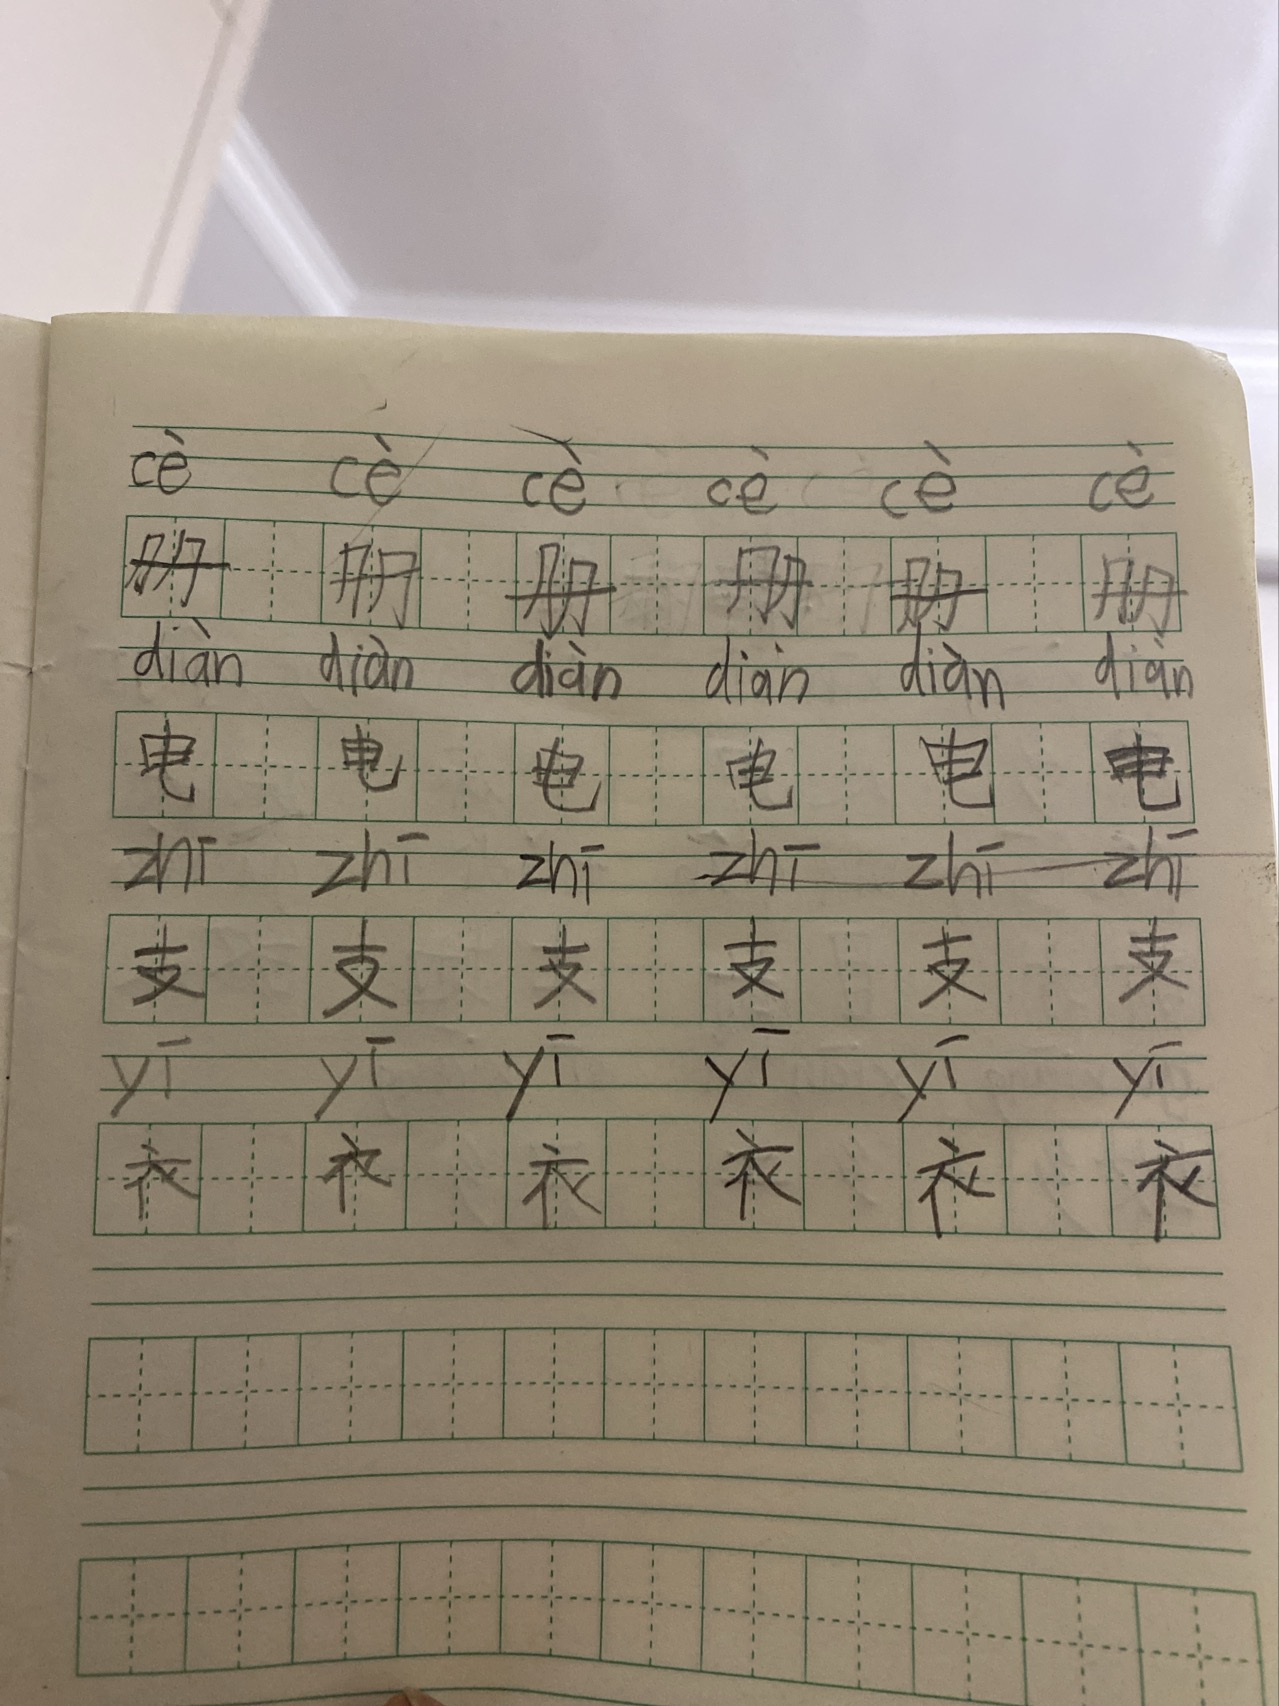 cè cè cè cè cè cè
册 册 册 册 册 册
diàn diàn diàn diàn diàn diàn
电 电 电 电 电 电
zhī zhī zhī zhī zhī zhī
支 支 支 支 支 支
yī yī yī yī yī yī
衣 衣 衣 衣 衣 衣